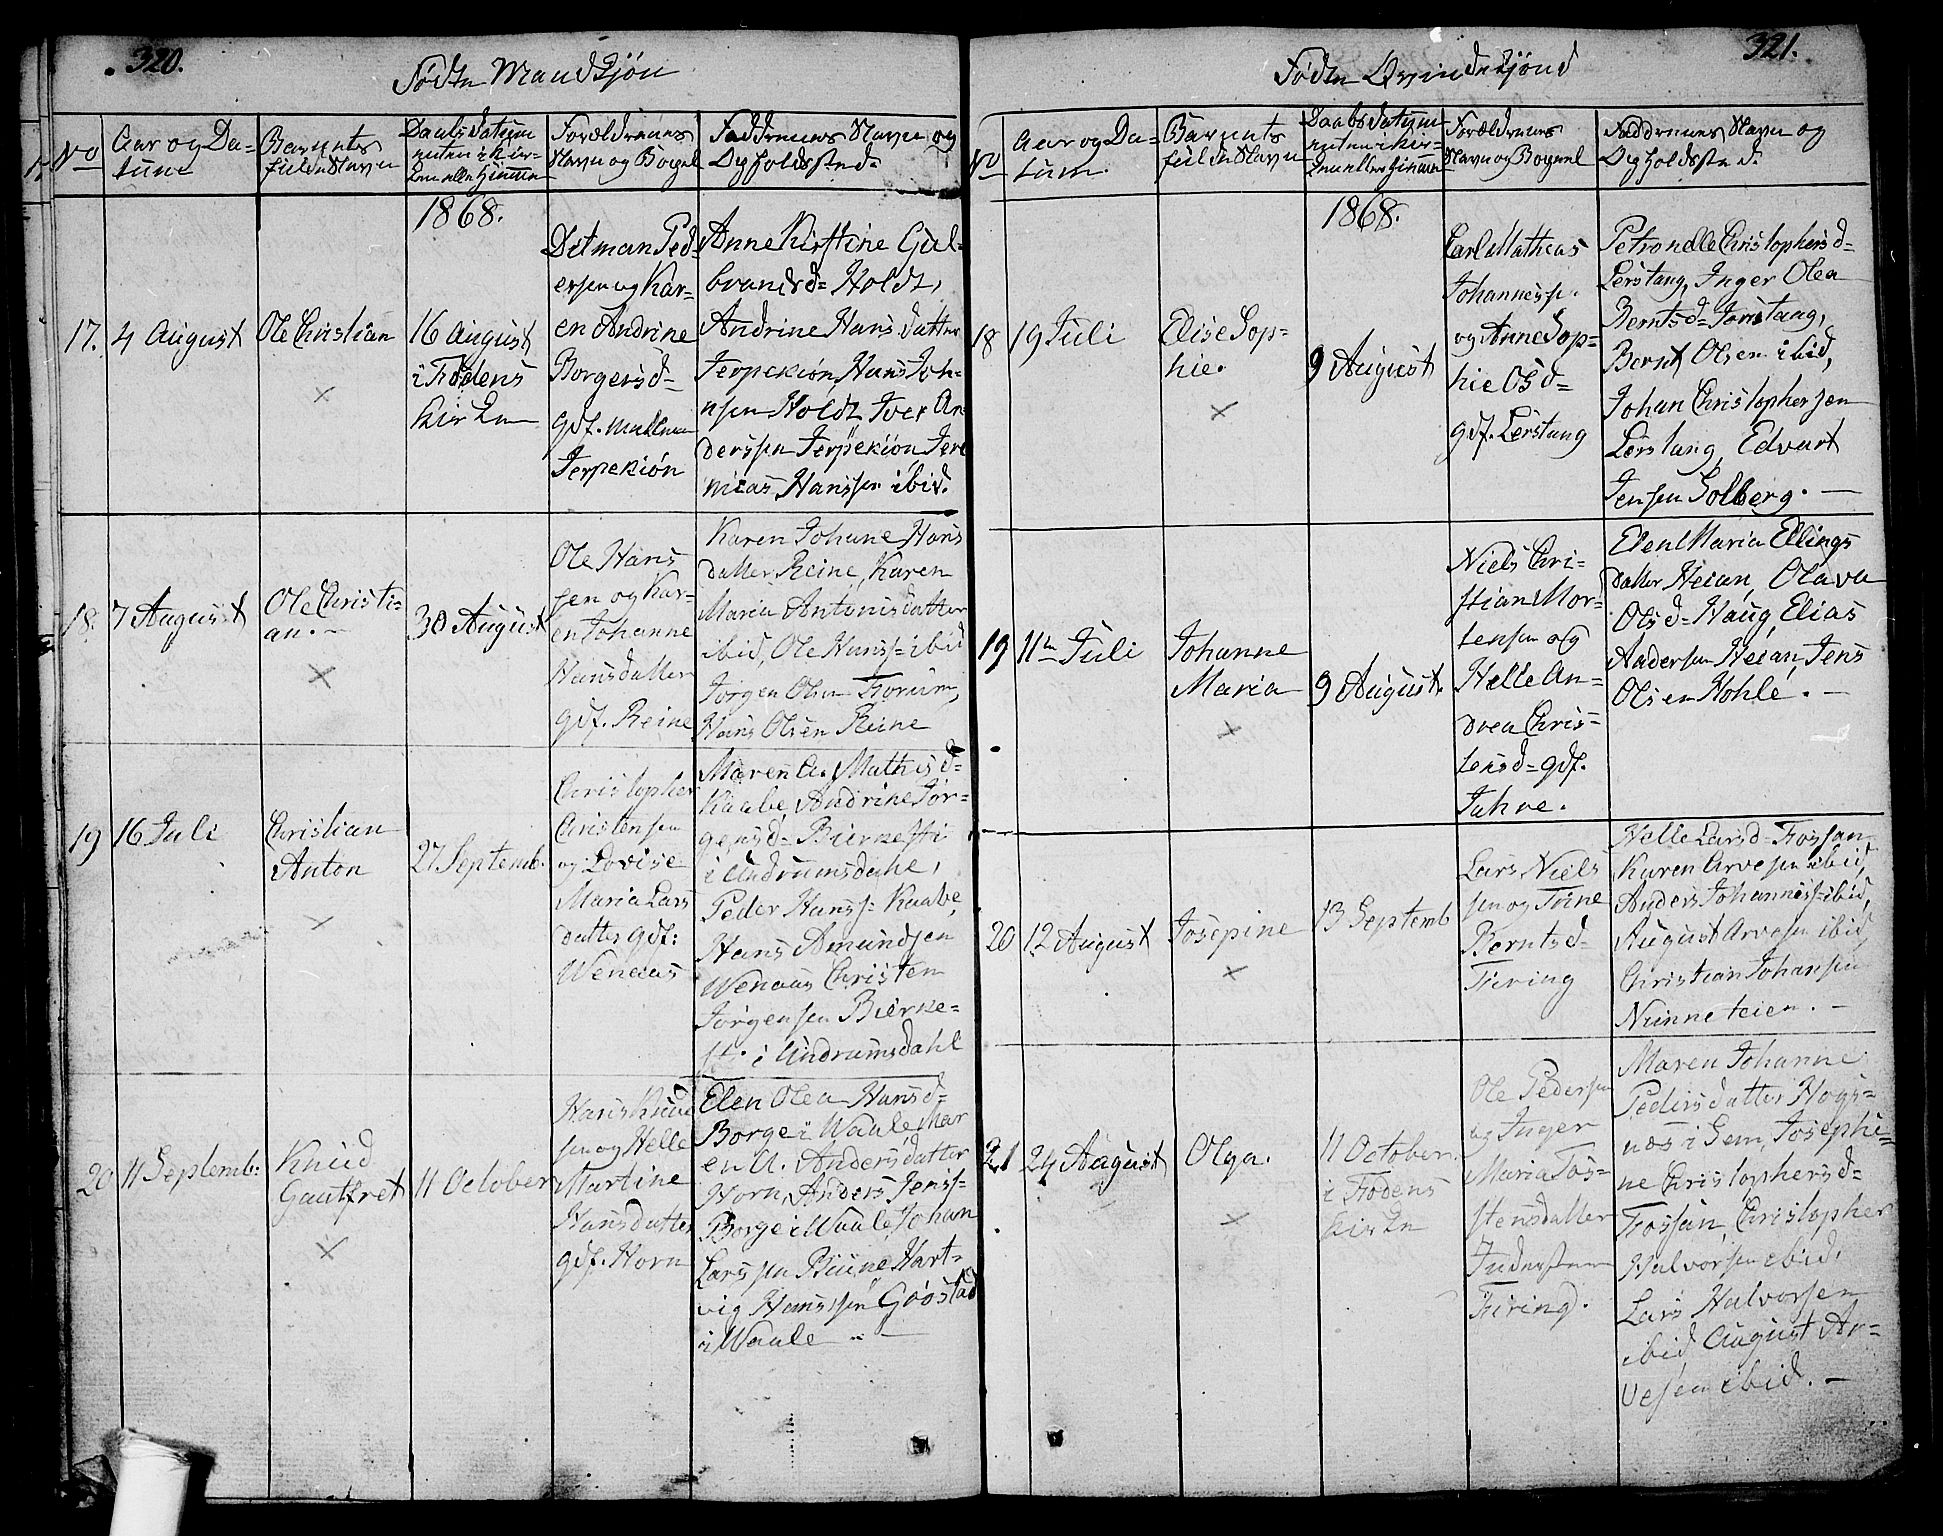 320.
Fødte Mandkjøn
No
Aar og Da-
tum
Barnets
fulde Navn
Daabs Datum
enten i Kir-
ken eller Hjemme
Forældrenes
Navn og Bopæl
Faddernes Navn og
Opholdsted
1868.
17.
4 August
Ole Christian
16 August
i Fødens
Kirke
Ditman Ped-
ersen og Kar-
en Andrine
Borgersd=
gdf. mellem
Jerpekiön
Anne Kirstine Gul-
brandsd= Holdt,
Andrine Hans datter
Jerpekiön, Hans Joh-
nsen Holdt Iver An-
derssen Jerpekiön Jere
mias Hanssen ibid.
18.
7 August
Ole Christi-
an. —
30 August
Ole Hans
sen og Kar-
en Johanne
Hansdatter
gdf. Reine
Karen Johane Hans
datter Reine, Karen
Maria Antonisdatter
ibid, Ole Hanss= ibid
Jørgen Olsen Forum,
Hans Olsen Reine
19
16 Juli
Christian
Anton
27 Septemb.
Christopher
Christensen
og Lovise
Maria Lars
datter gdf:
Wenaas
Maren A. Mathisd=
Kaabe, Andrine Jør-
gensd= Bierkesti
i Undrumsdahl,
Peder Hanss= Kaabe,
Hans Amundsen
Wenaas Christen
Jørgensen Bierke=
sti i Undrumsdahl
20
11 Septemb:
Knud
Gautfret
11 October
Hans Knud
sen og Helle
Martine
Hansdatter
gdf. Horn
Elen Olea Hansd=
Borge i Waale Mar
en A. Andersdatter
Horn, Anders Jenss=
Borge i Waale, Johan
Larssen Bjune, Hart-
vig Hanssen Gööstad
i Waale —
321.
Fødte Qvindekjønd
No
Aar og Da-
tum.
Barnets
fulde Navn
Daabs Datum
enten i Kir-
ken eller Hjemme
Forældrenes
Navn og Bopæl
Faddernes Navn og
Opholdsted
1868.
18
19 Juli
Elise Sop-
hie.
9 August
Carl Mathias
Johanness.
og Anne Sop-
hie Olsd=
gdf. Lerstang
Petronelle Christophersd=
Lerstang, Inger Olea
Berntsd= Jonstang,
Bernt Olsen ibid,
Johan Christophersen
Lerstang, Edvart
Jensen Solberg. —
19
11te Juli
Johanne
Maria
9 August.
Niels Chri-
stian Mor-
tensen og
Helle An-
drea Chris-
tensd= gdf.
Tahre.
Elen Maria Ellings
datter Heian, Olava
Olsd= Haug, Elias
Andersen Heian, Jens
Olsen Kohlé. —
20
12 August
Josepine
13 Septemb
Lars Niels
sen og Trine
Berntsd=
Firing
Helle Larsd= Fossan
Karen Arvesen ibid,
Anders Johanness= ibid,
August Arvesen ibid,
Christian Johansen
Nunneteien. —
21
24 August
Olga.
11 October
i Fodens
Kirke
Ole Pedersen
og Inger
Maria Tos-
stensdatter
Inderste
Firing.
Maren Johanne
Pedersdatter Hogs=
næs i Sem, Josephi-
ne Christophersd=
Fossan, Christopher
Halvorsen ibid,
Lars Halvorsen
ibid August Ar=
vesen ibid. —